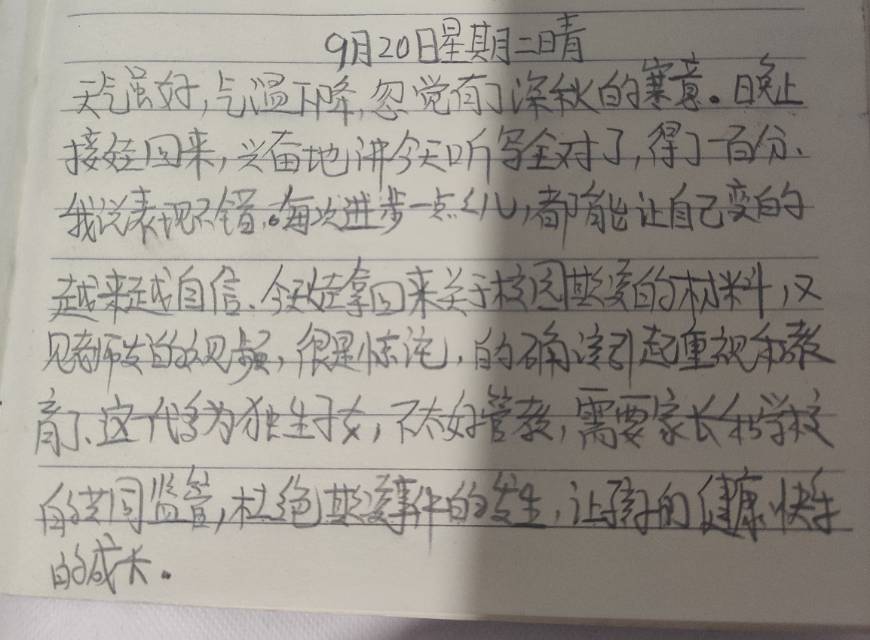 9月20日星期二晴
天气虽好,气温下降,忽觉有了深秋的寒意。晚上
接娃回来,兴奋地讲今天听写全对了,得了一百分、
我说表现不错。每次进步一点点儿,都能让自己变的
越来越自信、今天娃拿回来关于校园欺凌的材料,又
见老师发的视频,很是惊诧,的确该引起重视和教
育了、这一代多为独生子女,不太好管教,需要家长和学校
的共同监管,杜绝欺凌事件的发生,让孩子的健康快乐
的成长.